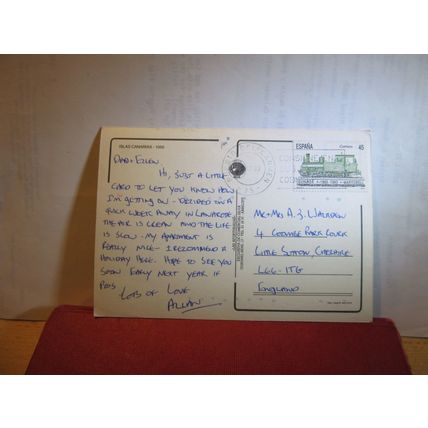 ISLAS CANARIAS - 1989
DAD + EILEEN
HI, JUST A LITTLE
CARD TO LET YOU KNOW HOW
I'M GETTING ON - DECIDED ON A
QUICK WEEK AWAY IN LANZAROTE
THE AIR IS CLEAN AND THE LIFE
IS SLOW - MY APARTMENT IS
REALLY NICE - I RECOMMEND A
HOLIDAY HERE - HOPE TO SEE YOU
SOON EARLY NEXT YEAR IF
POSS
LOTS OF LOVE
ALLAN
ESPAÑA
Correos
45
MR + MRS A. J. WALDRON
4 COOMBE PARK COURT
LITTLE SUTTON CHESHIRE
L66 - 1TG
ENGLAND